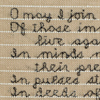 O may I join
Of those im
live aga
In minds
their pre
In pulses st
In deeds of